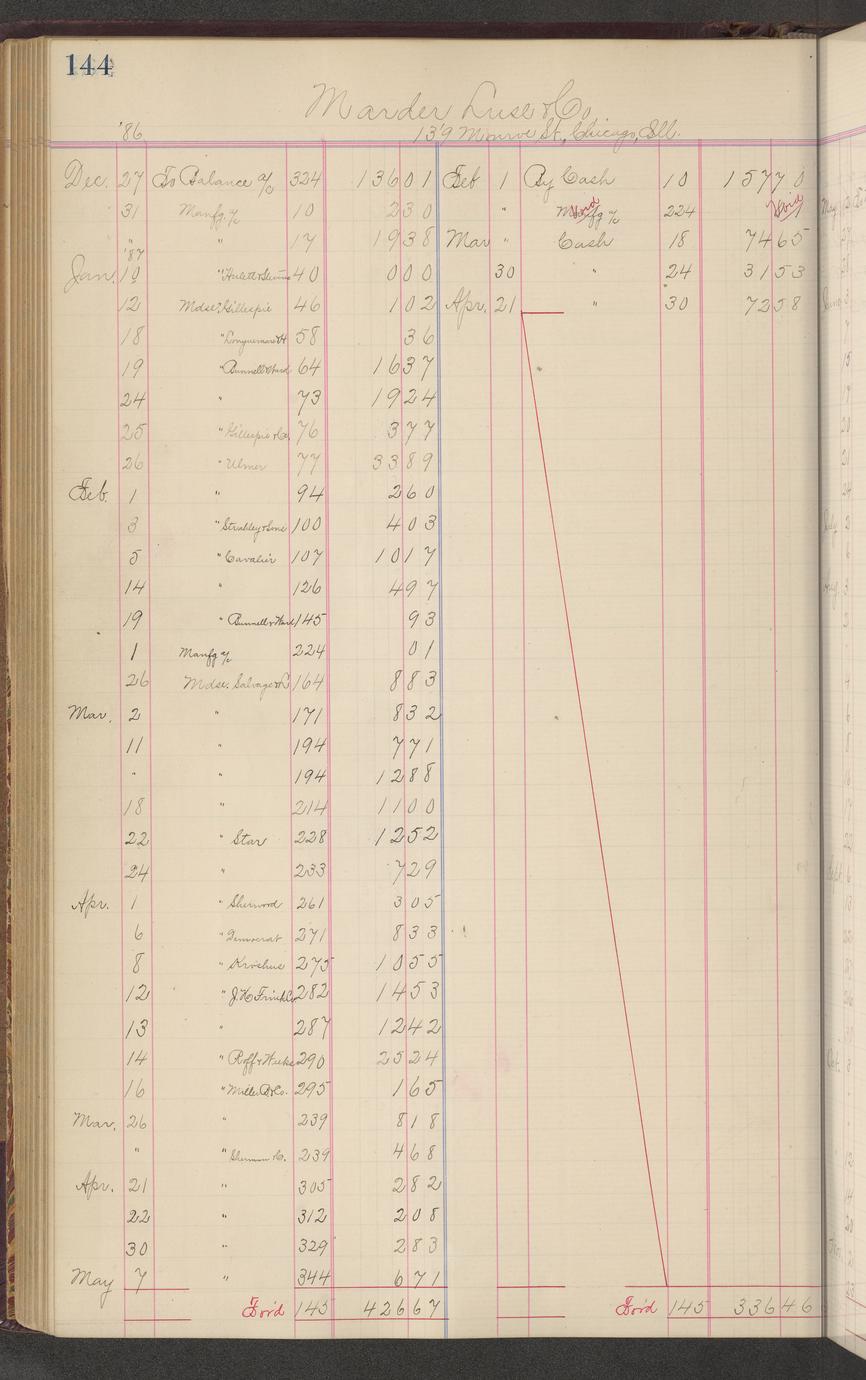 144
Marder Luse & Co.
'86 139 Monroe St., Chicago, Ill.
Dec. 27 To Balance a/c 324 13601 Feb 1 By Cash 10 15770
31 Manfg. a/c 10 230 " Manfg a/c Void 224 Void
" " 17 1938 Mar " Cash 18 7465
'87
Jan. 10 " 40 000 30 " 24 3153
12 Mdse. Gillespie 46 102 Apr. 21 " 30 7258
18 " 58 36
19 " Bunnell & Ward 64 1637
24 " 73 1924
25 " Gillespie & Co. 76 377
26 " Ulmer 77 3389
Feb. 1 " 94 260
3 " 100 403
5 " Cavalier 107 1017
14 " 126 497
19 " Bunnell & Ward 145 93
1 Manfg a/c 224 01
26 Mdse. 164 883
Mar. 2 " 171 832
11 " 194 771
" 194 1288
18 " 214 1100
22 " Star 228 1252
24 " 233 729
Apr. 1 " Sherwood 261 305
6 " Democrat 271 833
8 " 275 1055
12 " 282 1453
13 " 287 1242
14 " Roff & Weeks 290 2524
16 " Miller & Co. 295 165
Mar. 26 " 239 818
" " Sherman 239 468
Apr. 21 " 305 282
22 " 312 208
30 " 329 283
May 7 " 344 671
For'd 145 42667 For'd 145 33646